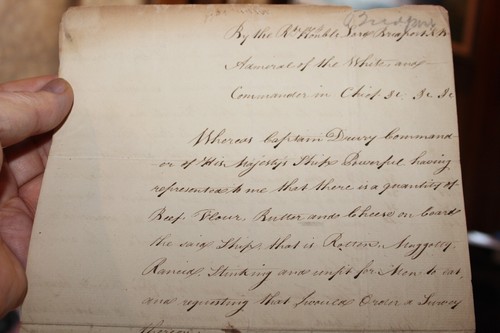 By the Rt. Honble Lord Bridport K.B.
Admiral of the White, and
Commander in Chief &c. &c. &c.
Whereas Captain Drury Command-
er of His Majesty's Ship Powerful having
represented to me that there is a quantity of
Beef, Flour, Butter and Cheese on board
the said Ship, that is Rotten, Maggotty,
Rancid, Stinking and unfit for Men to eat,
and requesting that I would Order a Survey
thereon